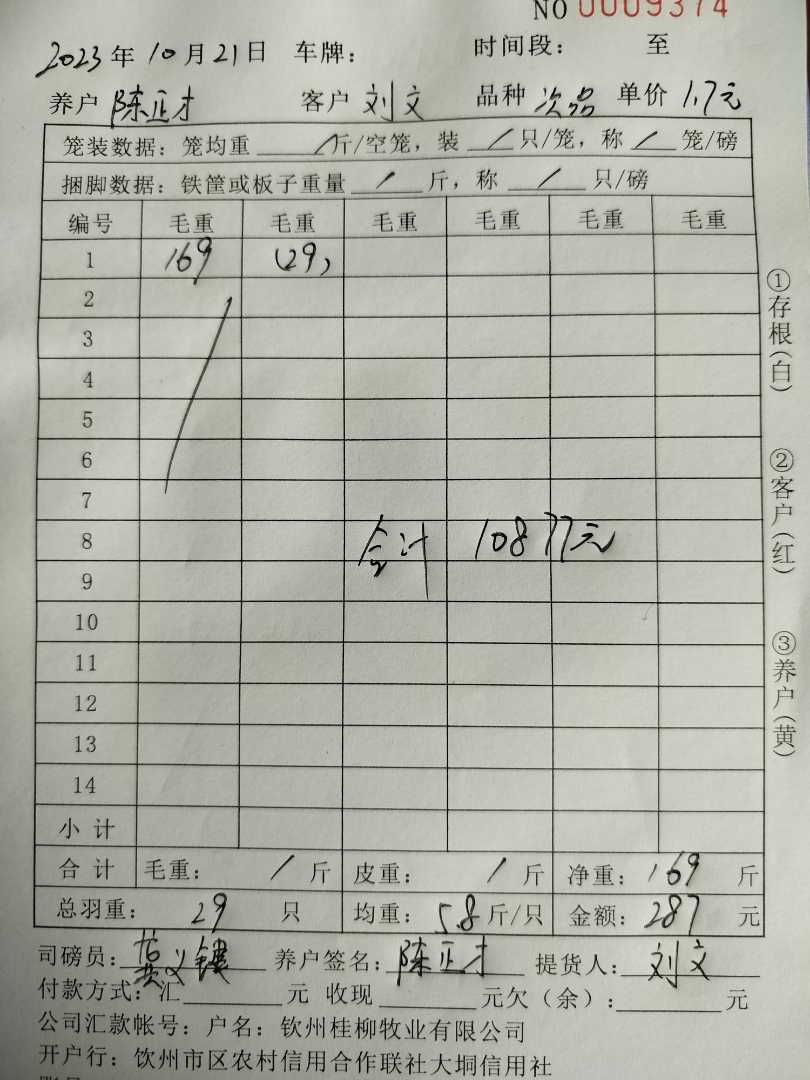 NO 0009374
2023年10月21日 车牌: 时间段: 至
养户 陈正才 客户 刘文 品种 次品 单价 1.7元
笼装数据: 笼均重 / 斤/空笼, 装 / 只/笼, 称 / 笼/磅
捆脚数据: 铁筐或板子重量 / 斤, 称 / 只/磅
编号 毛重 毛重 毛重 毛重 毛重 毛重
1 169 (29)
2
3
4
5
6
7
8 合计 10877元
9
10
11
12
13
14
小计
合计 毛重: / 斤 皮重: / 斤 净重: 169 斤
总羽重: 29 只 均重: 5.8 斤/只 金额: 287 元
司磅员: 养户签名: 陈正才 提货人: 刘文
付款方式: 汇 元 收现 元欠(余): 元
公司汇款帐号: 户名: 钦州桂柳牧业有限公司
开户行: 饮州市区农村信用合作联社大垌信用社
①存根(白)
②客户(红)
③养户(黄)